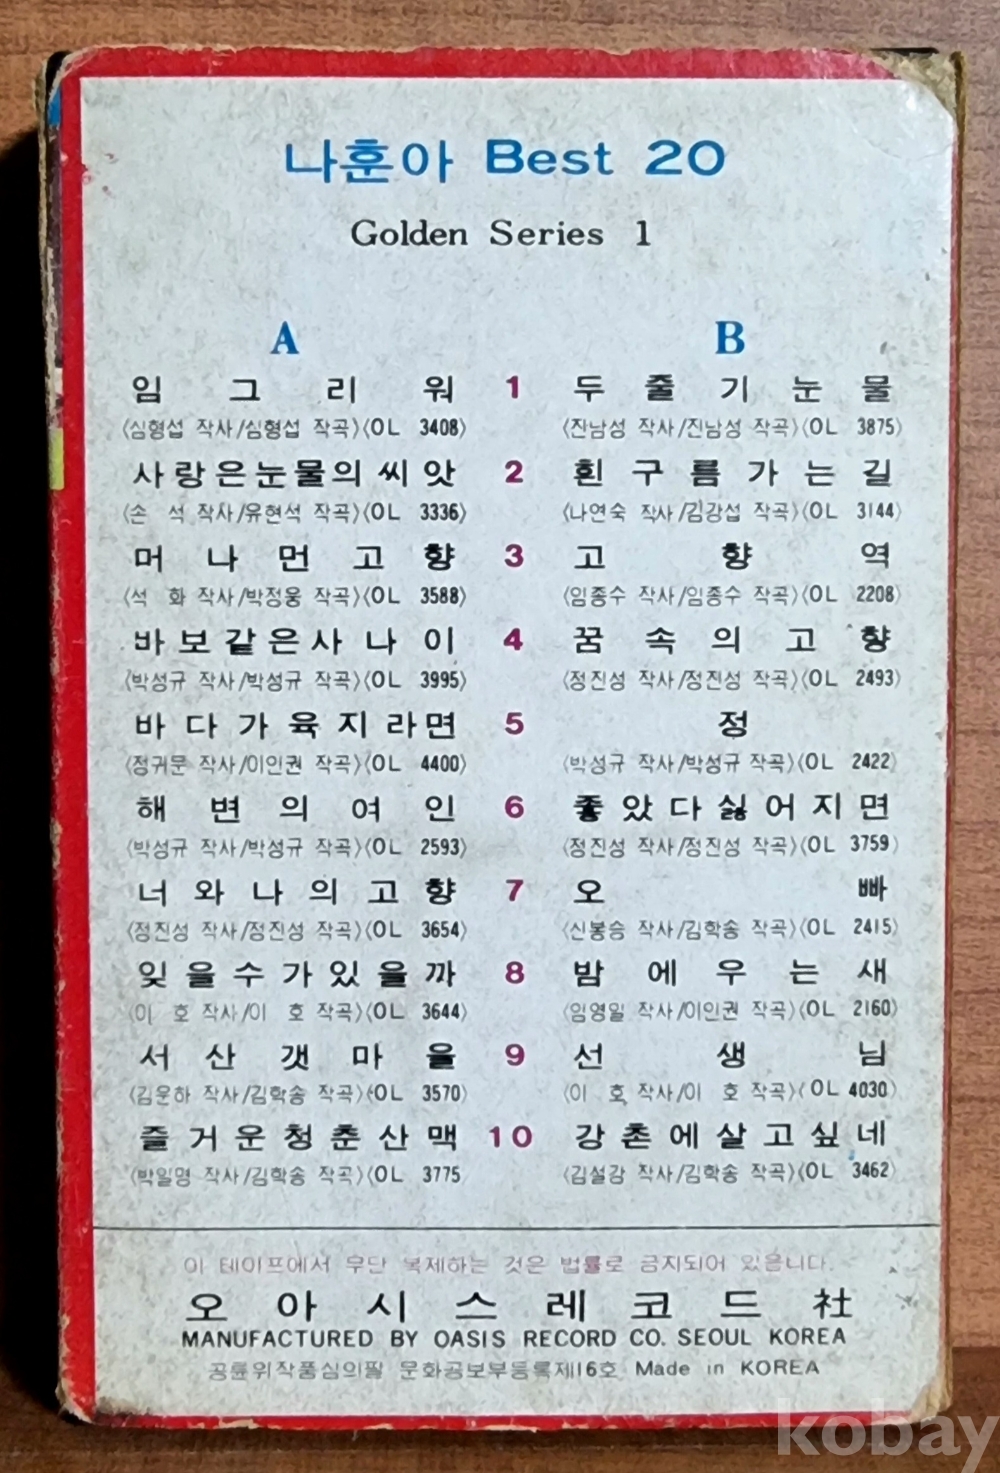 나훈아 Best 20
Golden Series 1
A B
임그리워 1 두줄기눈물
〈심형섭 작사/심형섭 작곡〉〈OL 3408〉 〈진남성 작사/진남성 작곡〉〈OL 3875〉
사랑은눈물의씨앗 2 흰구름가는길
〈손 석 작사/유현석 작곡〉〈OL 3336〉 〈나연숙 작사/김강섭 작곡〉〈OL 3144〉
머나먼고향 3 고향역
〈석 화 작사/박정웅 작곡〉〈OL 3588〉 〈임종수 작사/임종수 작곡〉〈OL 2208〉
바보같은사나이 4 꿈속의고향
〈박성규 작사/박성규 작곡〉〈OL 3995〉 〈정진성 작사/정진성 작곡〉〈OL 2493〉
바다가육지라면 5 정
〈정귀문 작사/이인권 작곡〉〈OL 4400〉 〈박성규 작사/박성규 작곡〉〈OL 2422〉
해변의여인 6 좋았다싫어지면
〈박성규 작사/박성규 작곡〉〈OL 2593〉 〈정진성 작사/정진성 작곡〉〈OL 3759〉
너와나의고향 7 오빠
〈정진성 작사/정진성 작곡〉〈OL 3654〉 〈신봉승 작사/김학송 작곡〉〈OL 2415〉
잊을수가있을까 8 밤에우는새
〈이 호 작사/이 호 작곡〉〈OL 3644〉 〈임영일 작사/이인권 작곡〉〈OL 2160〉
서산갯마을 9 선생님
〈김운하 작사/김학송 작곡〉〈OL 3570〉 〈이 호 작사/이 호 작곡〉〈OL 4030〉
즐거운청춘산맥 10 강촌에살고싶네
〈박일명 작사/김학송 작곡〉〈OL 3775〉 〈김설강 작사/김학송 작곡〉〈OL 3462〉
이 테이프에서 무단 복제하는 것은 법률로 금지되어 있읍니다.
오아시스레코드社
MANUFACTURED BY OASIS RECORD CO. SEOUL KOREA
공륜위작품심의필 문화공보부등록제16호 Made in KOREA
kobay